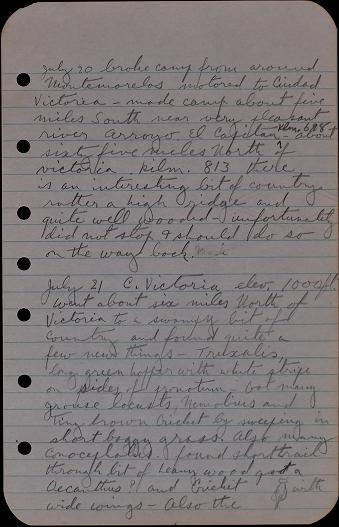 July 20 broke camp from around
Montemorelos motored to Ciudad
Victoria - made camp about five
miles South near very pleasant
river Arroyo El Capitan - Klm. 688 - about
sixty five miles North of
Victoria. Kilm. 813 there
is an interesting bit of country
rather a high ridge and
quite well wooded - unfortunately
did not stop & should do so
on the way back.
July 21 C. Victoria elev. 1000 ft.
went about six miles North of
Victoria to a swampy bit of
country and found quite a
few new things - Truxalis,
long green hopper with white stripe
on sides of pronotum - Got many
grouse locusts, Nemobius and
tiny brown cricket by sweeping in
short boggy grass. Also many
Conocephalus. Found shorttail
through bit of heavy wood got a
Oecanthus ?! and Cricket with
wide wings - Also the